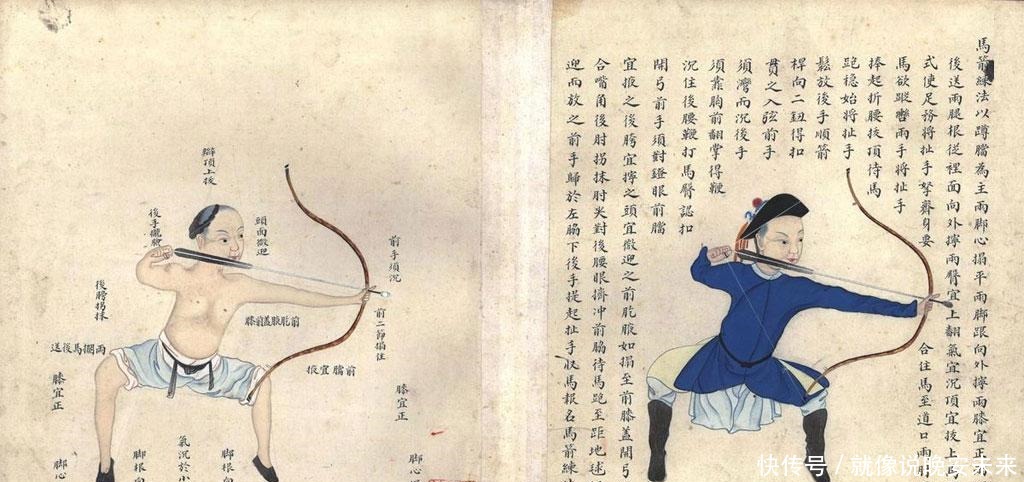 馬箭練法以蹲為主兩脚心搨平兩脚跟向外擰兩膝宜正
後送兩腿根從裡面向外擰兩臀宜上翻氣宜沉頂宜拔上
式使足務將扯手拏齊身要合住馬至道口兩
馬欲蹤轡兩手將扯手
捧起折腰拔頂待馬
跑穩始將扯手
鬆放後手順箭
桿向二鈕得扣
貫之入弦前手
須灣而沉後手
須靠胸前翻掌得鞭
沉住後腰鞭打馬臀認扣
開弓前手須對鐙眼前
宜掖之後胯宜擰之頭宜微迎之前肐腋如搨至前膝蓋開弓
合嘴角後肘拐抹肘尖對後腰眼擠冲前脇待馬跑至距地毬
迎而放之前手歸於左脇下後手提起扯手收馬報名馬箭練
前手須沉
前二節搨住
頭面微迎
辮頂上拔
後手
後膀拐抹
前肐腋蓋前膝
前宜掖
兩馬後送
膝宜正
膝宜正
氣沉於小
脚根向
脚根向
脚心
脚心
快传号 / 就像说晚安未来